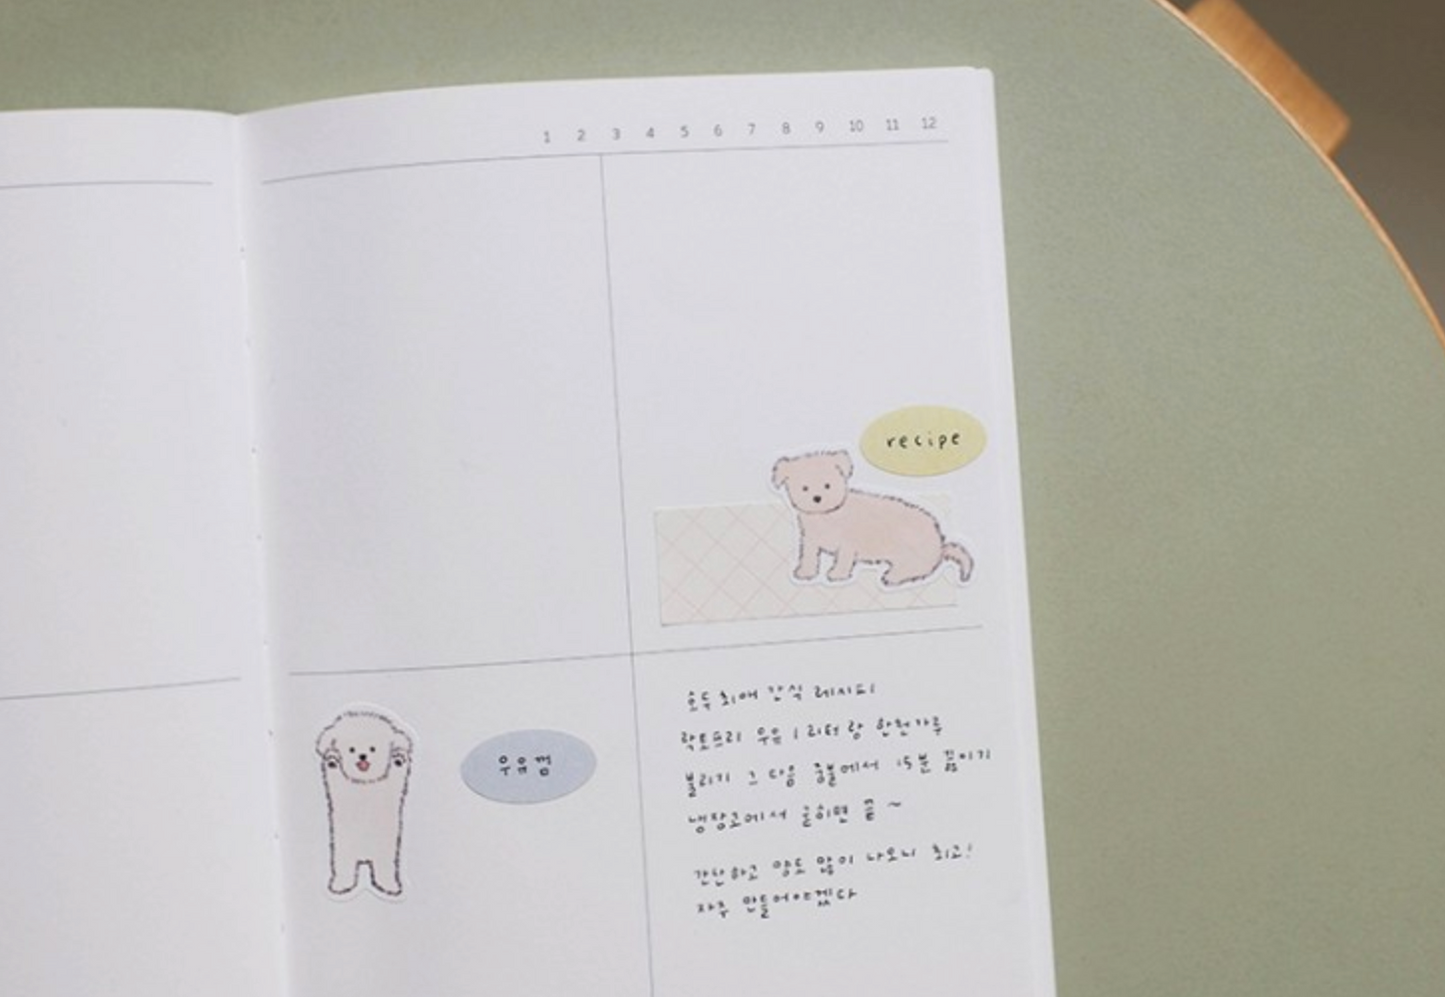 1 2 3 4 5 6 7 8 9 10 11 12
recipe
우유껌
호두 최애 간식 레시피
락토프리 우유 1리터랑 한천가루
불리기 그 다음 중불에서 15분 끓이기
냉장고에서 굳히면 끝~
간단하고 양도 많이 나오니 최고!
자주 만들어야겠다